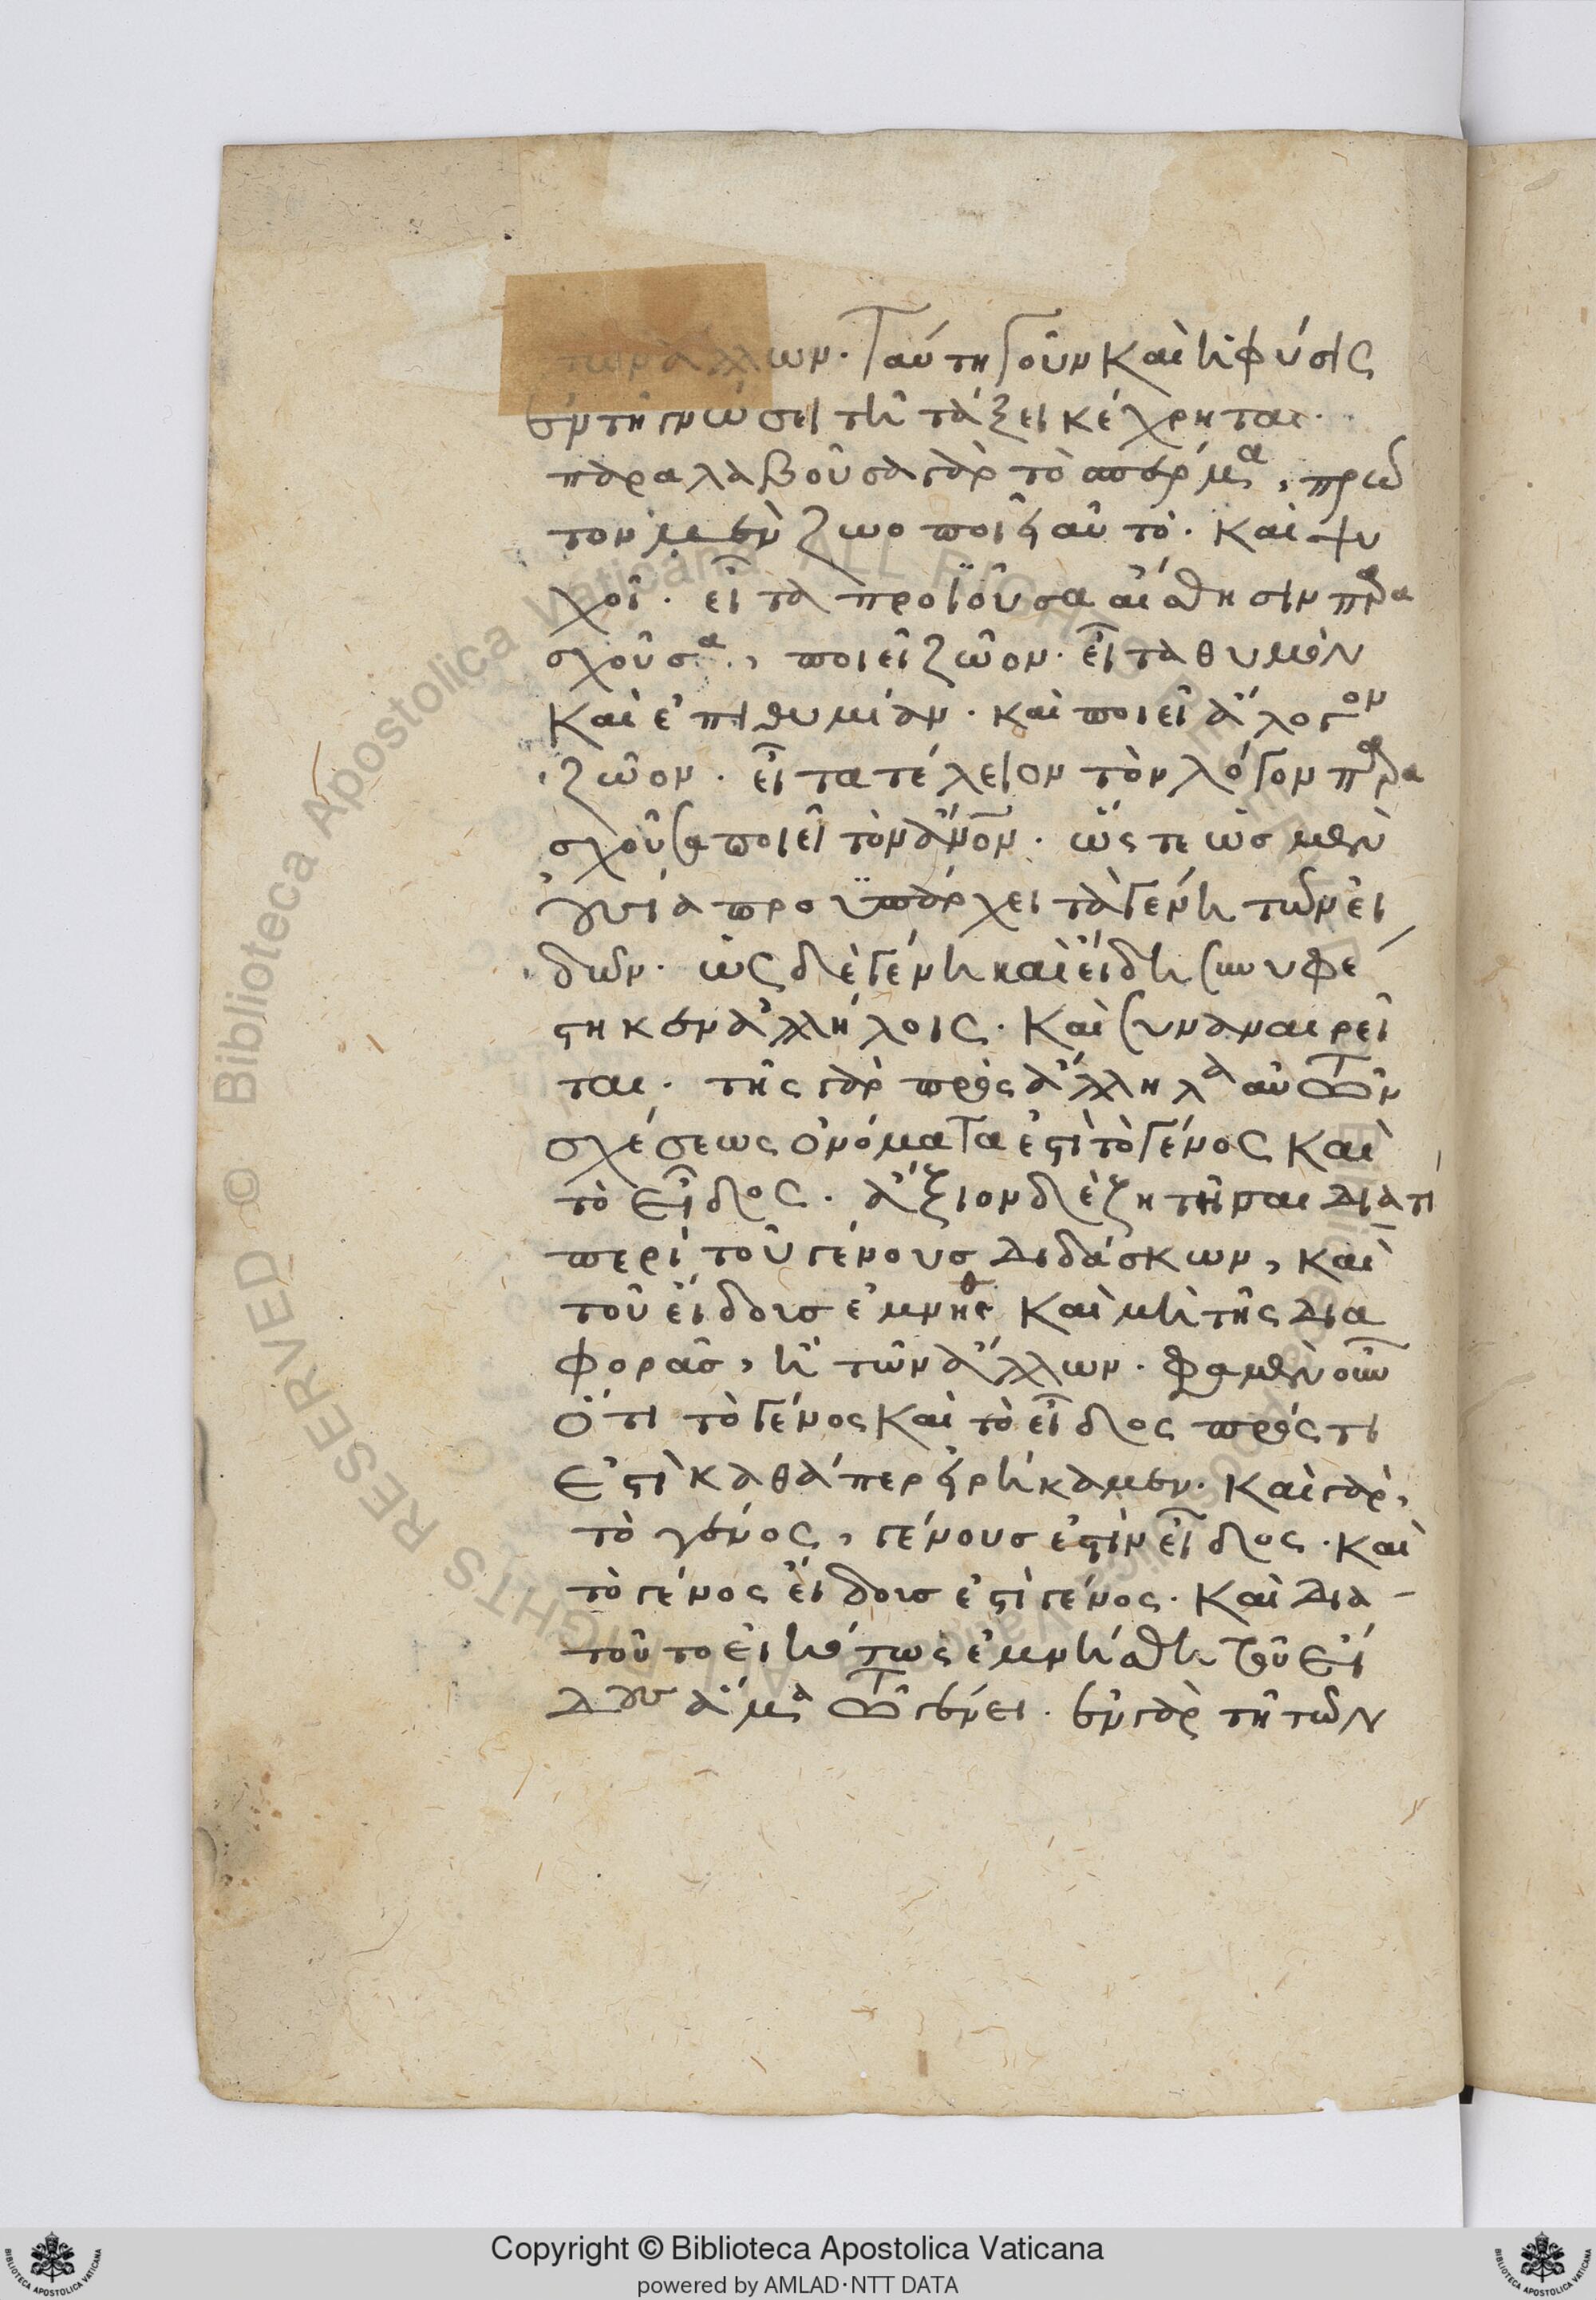 τῶν ἄλλων. Ταύτη γοῦν καὶ ἡ φύσις
ἐν τῆ γνώσει τῆ τάξει κέχρηται.
παραλαβοῦσα γὰρ τὸ σπέρμα, πρῶ
τον μὲν ζωοποιεῖ αὐτό. καὶ ψυ
χοῖ. εἶτα προϊοῦσα αἴσθησιν παρα
σχοῦσα, ποιεῖ ζῶον. εἶτα θυμὸν
καὶ ἐπιθυμίαν. καὶ ποιεῖ ἄλογον
ζῶον. εἶτα τέλειον τὸν λόγον παρα
σχοῦσα ποιεῖ τὸν ἄνον. ὥςτε ὡσ μὲν
οὐσία προϋπάρχει τὰ γένη τῶν εἰ
δῶν. ὡς δὲ γένη καὶ εἴδη συνυφέ
στηκεν ἀλλήλοις. καὶ συναναιρεῖ
ται. τῆς γὰρ πρὸς ἄλληλα αὐτῶν
σχέσεως ὀνόματα ἐστὶ τὸ γένος καὶ
τὸ εἶδος. ἄξιον δὲ ζητῆσαι διατί
περί τοῦ γένουσ διδάσκων, καὶ
τοῦ εἴδουσ ἐμνήσθη καὶ μὴ τῆς δια
φορᾶσ, ἢ τῶν ἄλλων. φαμὲν οὖν
ὅτι τὸ γένος καὶ τὸ εἶδος πρός τι
ἐστὶ καθάπερ εἰρήκαμεν. καὶ γὰρ,
τὸ γένος, γένουσ ἐστὶν εἶδος. καὶ
τὸ γένος εἴδουσ ἐστὶ γένος. καὶ δια-
τοῦτο εἰκότως ἐμνήσθη τοῦ εἴ
δους ἅμα τῶ γένει. ἐν γὰρ τῆ τῶν
Copyright © Biblioteca Apostolica Vaticana
powered by AMLAD·NTT DATA